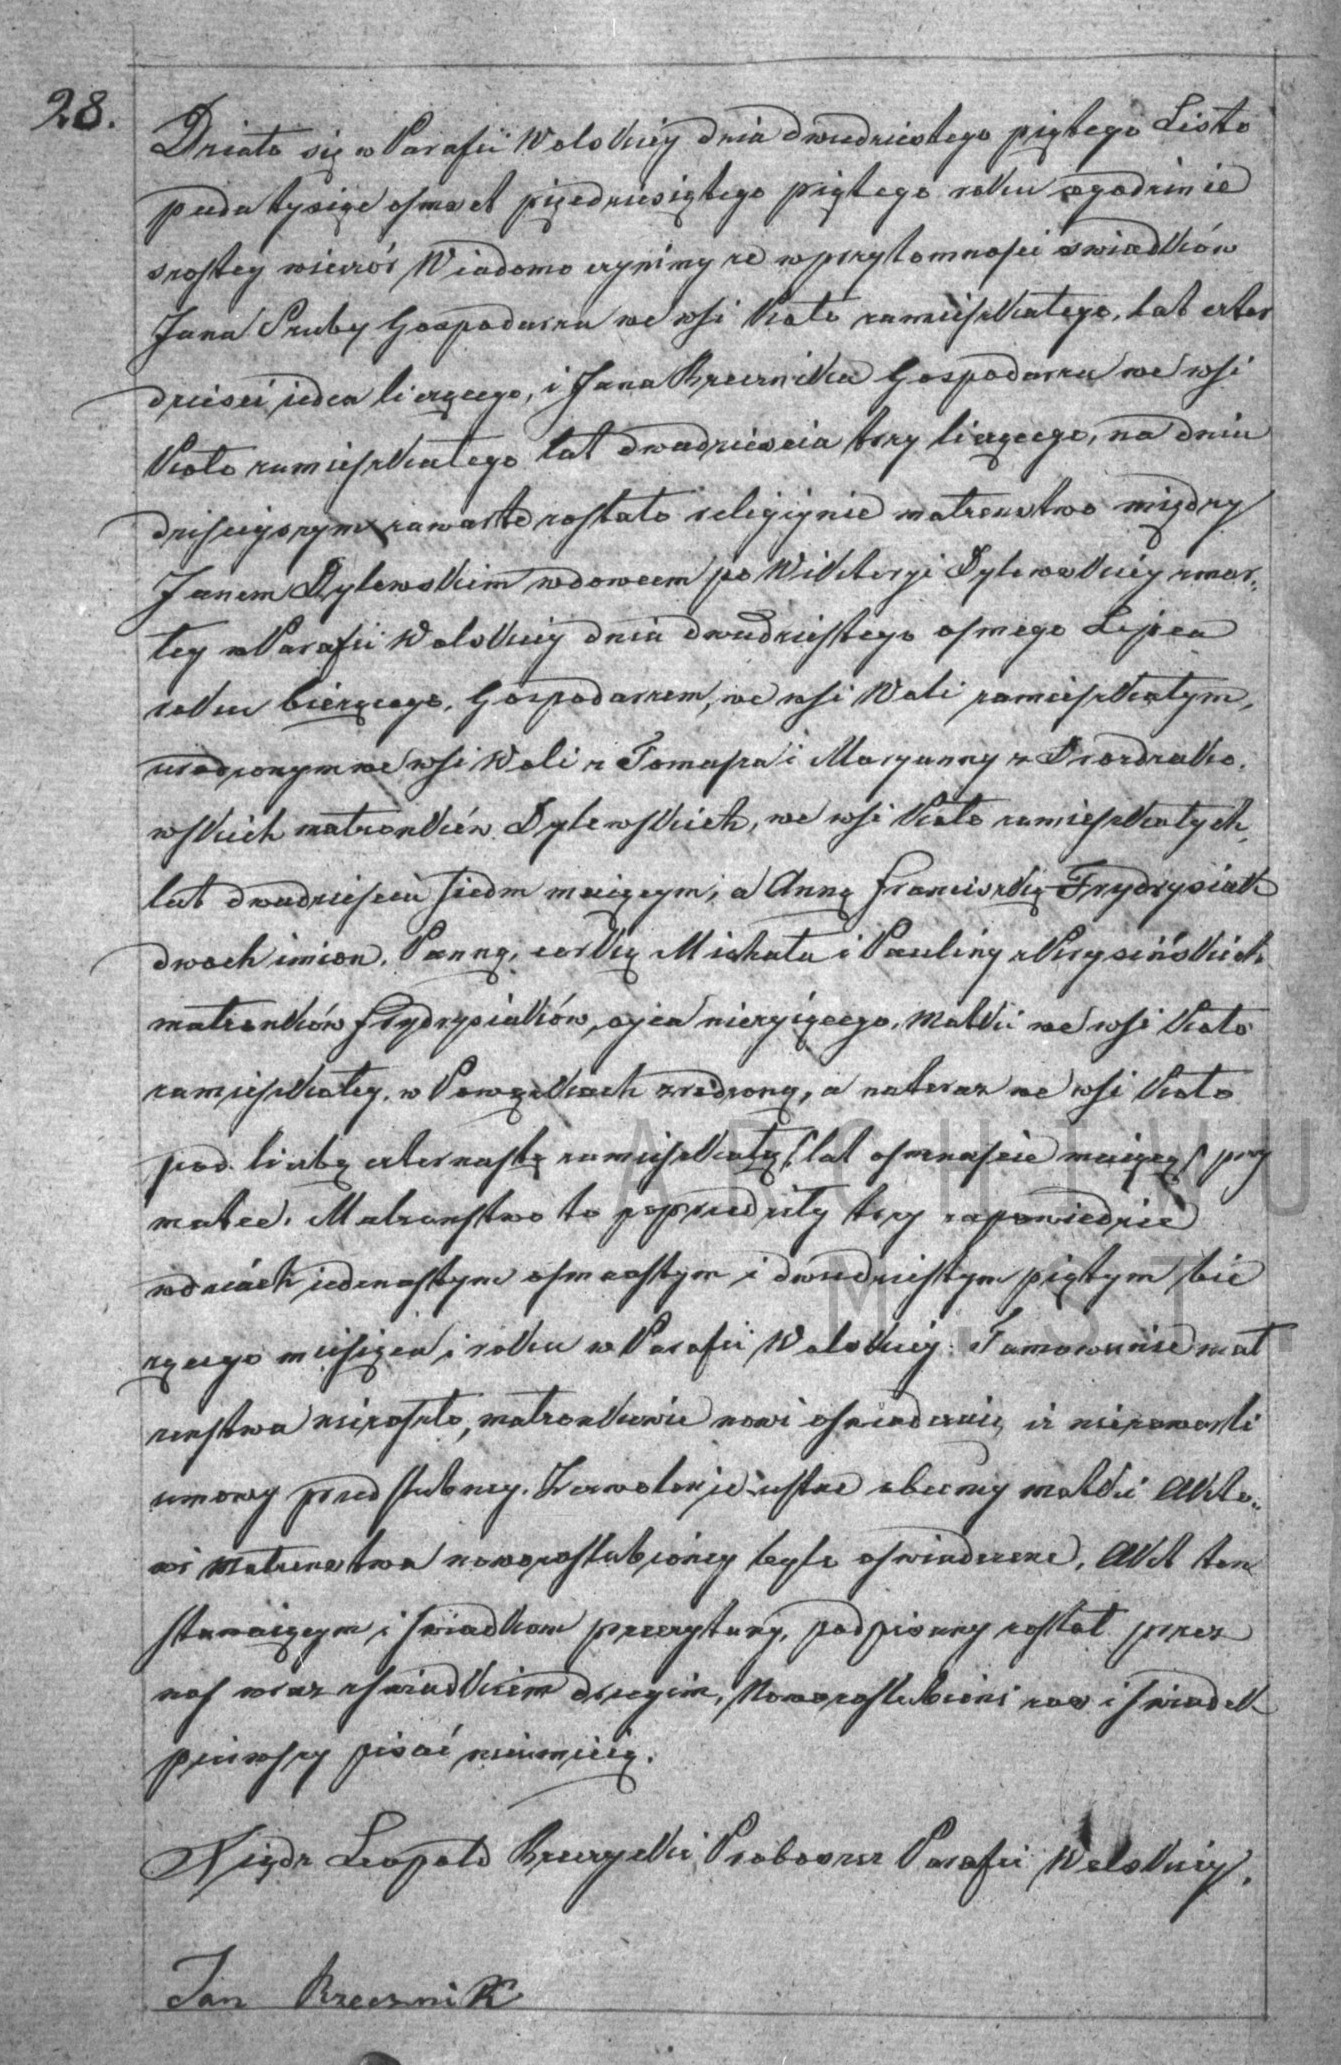 28.
Działo się w Parafii Wolskiéy dnia dwudziestego piątego Listo
pada tysiąc osmset pięćdziesiątego piątego roku o godzinie
szostey wieczór Wiadomo czynimy że w przytomności świadków
Jana Szuby Gospodarza we wsi Koło zamieszkałego, lat czter
dzieści ieden liczącego, i Jana Rzecznika Gospodarza we wsi
Koło zamieszkałego lat dwadzieścia trzy liczącego, na dniu
dzisieyszym zawarte zostało religiynie małżeństwo między
Janem Dylewskim wdowcem po Wiktoryi Dylewskiey zmar-
łey w Parafii Wolskiéy dnia dwudziestego osmego Lipca
roku bieżącego, Gospodarzem, we wsi Woli zamieszkałym,
urodzonym we wsi Woli z Tomasza i Maryanny z Drozdzako-
wskich małżonków Dylewskich, we wsi Koło zamieszkałych,
lat dwadzieścia siedm maiącym, a Anną Franciszką Frydrysiak
dwoch imion, Panną, corką Michała i Pauliny z Krysińskich
małżonków Frydrysiaków, oyca nieżyiącego, Matki we wsi Koło
zamieszkałey, w Powązkach zrodzoną, a na teraz we wsi Koło
pod liczbą czternastą zamieszkałą (lat osmnaście maiącą) przy
matce. Małżeństwo to poprzedziły trzy zapowiedzie
w dniach iedenastym osmnastym i dwudziestym piątym bie
żącego miesiąca i roku w Parafii Wolskiéy. Tamowanie mał
żeństwa nie zaszło, małżonkowie nowi oświadczaią iż nie zawarli
umowy przedślubney. Zezwolenie ustne obecney matki Akto-
wi Małżeństwa nowozaślubioney było oświadczone. Akt ten
stawaiącym i świadkom przeczytany, podpisany został przez
nas wraz z świadkiem drugim, Nowozaślubieni zaś i świadek
pierwszy pisać nieumieią.
Xiądz Leopold Rzeczycki Proboszcz Parafii Wolskiéy.
Jan Rzecznik
ARCHIWU
M. ST.